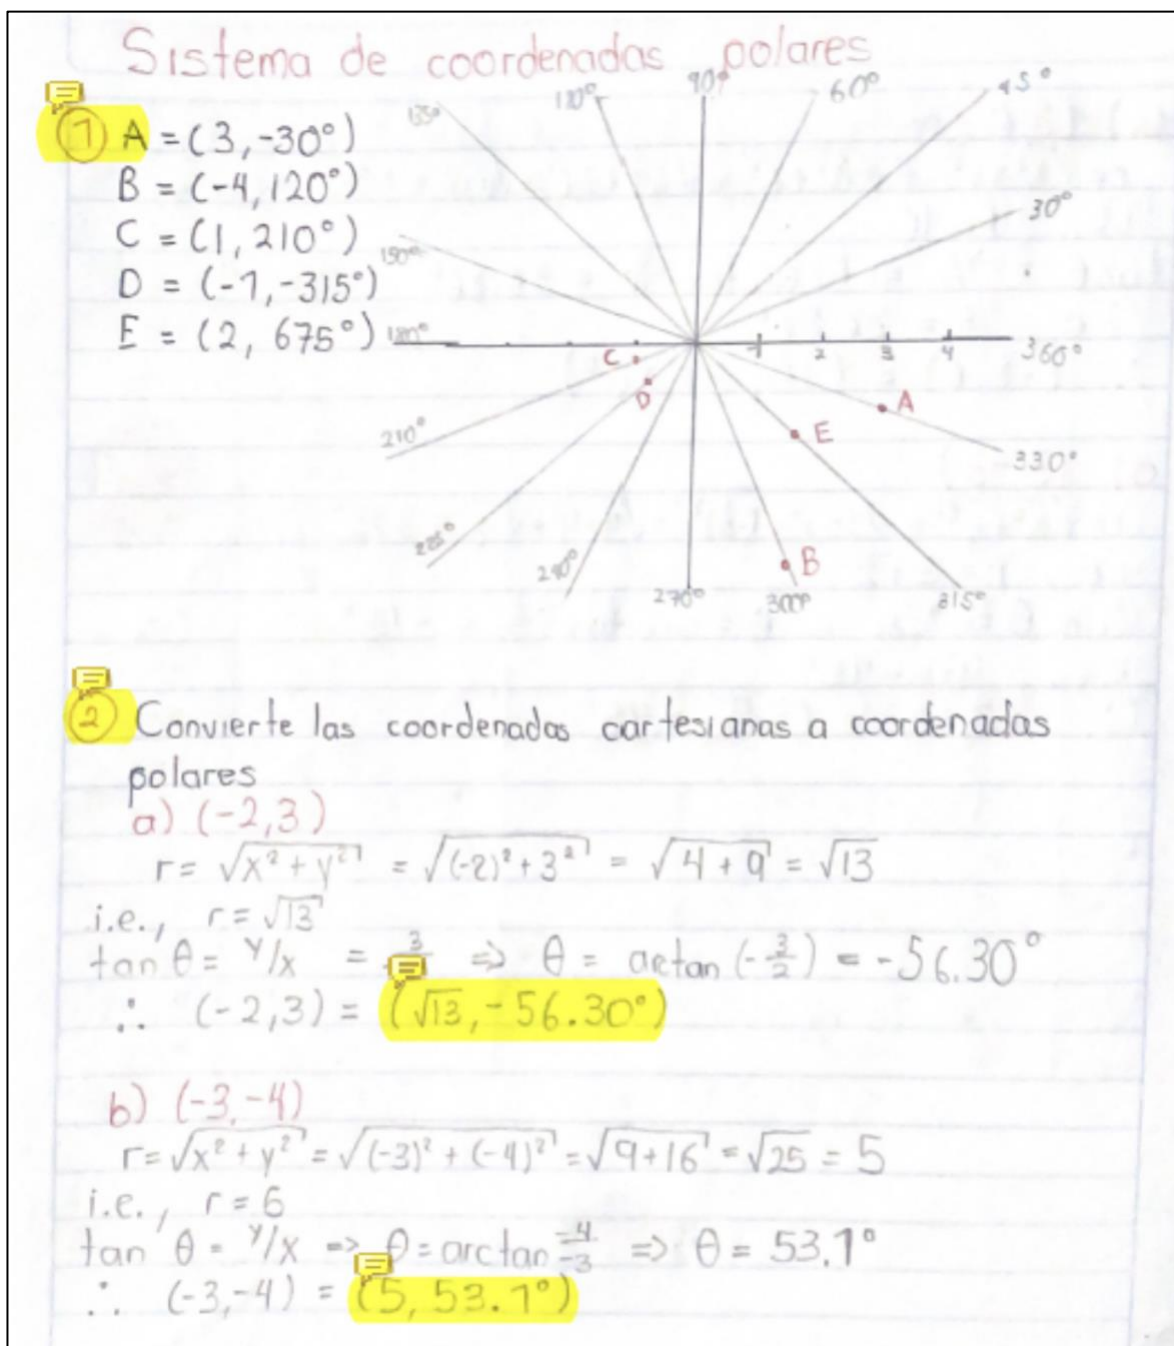 Sistema de coordenadas polares
① A = (3, -30°)
B = (-4, 120°)
C = (1, 210°)
D = (-1, -315°)
E = (2, 675°)
135°
120°
90°
60°
45°
30°
150°
180°
1 2 3 4
360°
C
D
A
E
B
210°
225°
240°
270°
300°
315°
330°
② Convierte las coordenadas cartesianas a coordenadas
polares
a) (-2,3)
r = √(x² + y²) = √((-2)² + 3²) = √(4 + 9) = √13
i.e., r = √13
tan θ = y/x = 3 ⇒ θ = arctan (-3/2) = -56.30°
∴ (-2,3) = (√13, -56.30°)
b) (-3,-4)
r = √(x² + y²) = √((-3)² + (-4)²) = √(9+16) = √25 = 5
i.e., r = 6
tan θ = y/x => θ = arctan -4/-3 ⇒ θ = 53.1°
∴ (-3,-4) = (5, 53.1°)